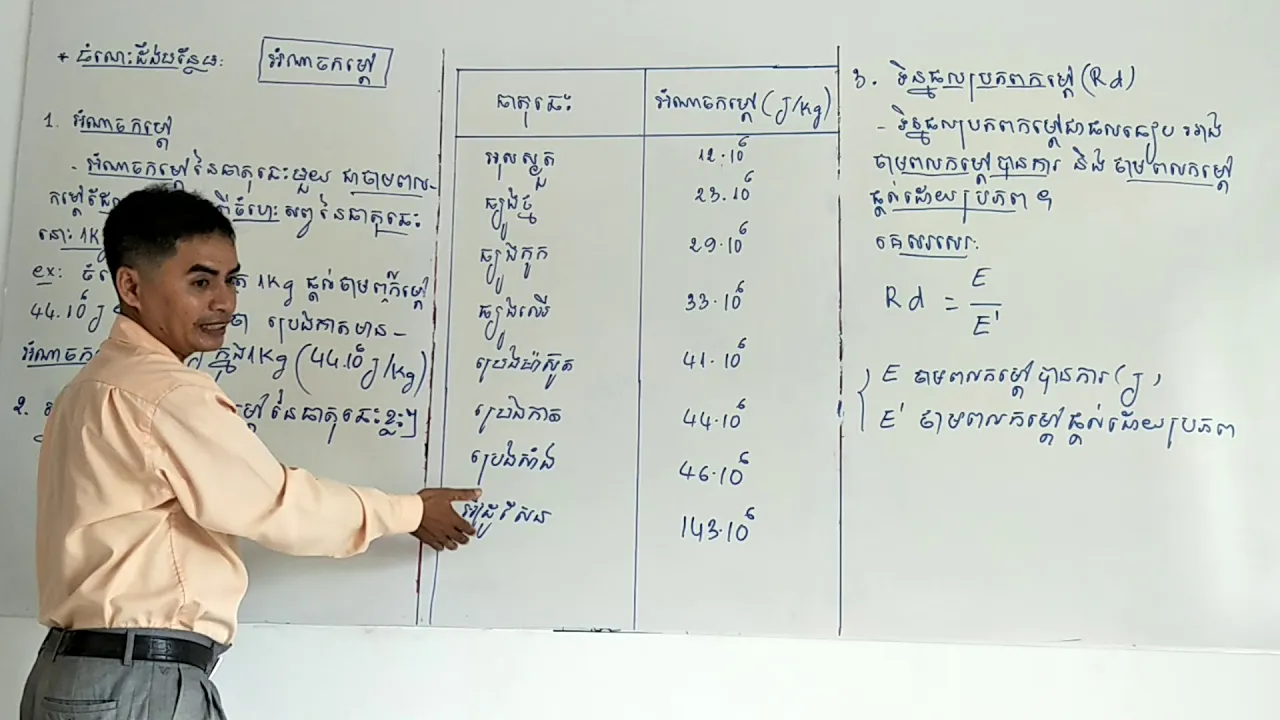 * ចំណេះដឹងបន្ថែម:
អំណាចកម្ដៅ
1. អំណាចកម្ដៅ
- អំណាចកម្ដៅនៃធាតុឆេះមួយ ជាថាមពល-
កម្ដៅដែល ពីចំហេះសព្វនៃធាតុឆេះ
នោះ 1Kg
ex: 1Kg ផ្ដល់ថាមពលកម្ដៅ
44.10⁶J ថា ប្រេងកាតមាន-
អំណាចកម្ដៅ ក្នុង1Kg (44.10⁶J/Kg)
2. កម្ដៅនៃធាតុឆេះខ្លះៗ
ធាតុឆេះ អំណាចកម្ដៅ (J/Kg)
អុសស្ងួត 12.10⁶
ធ្យូងថ្ម 23.10⁶
ធ្យូងកូក 29.10⁶
ធ្យូងឈើ 33.10⁶
ប្រេងម៉ាស៊ូត 41.10⁶
ប្រេងកាត 44.10⁶
ប្រេងសាំង 46.10⁶
អ៊ីដ្រូសែន 143.10⁶
3. ទិន្នផលប្រភពកម្ដៅ (Rd)
- ទិន្នផលប្រភពកម្ដៅជាផលធៀបរវាង
ថាមពលកម្ដៅបានការ និង ថាមពលកម្ដៅ
ផ្ដល់ដោយប្រភព ។
គេសរសេរ:
Rd = E / E'
E ថាមពលកម្ដៅបានការ (J)
E' ថាមពលកម្ដៅផ្ដល់ដោយប្រភព